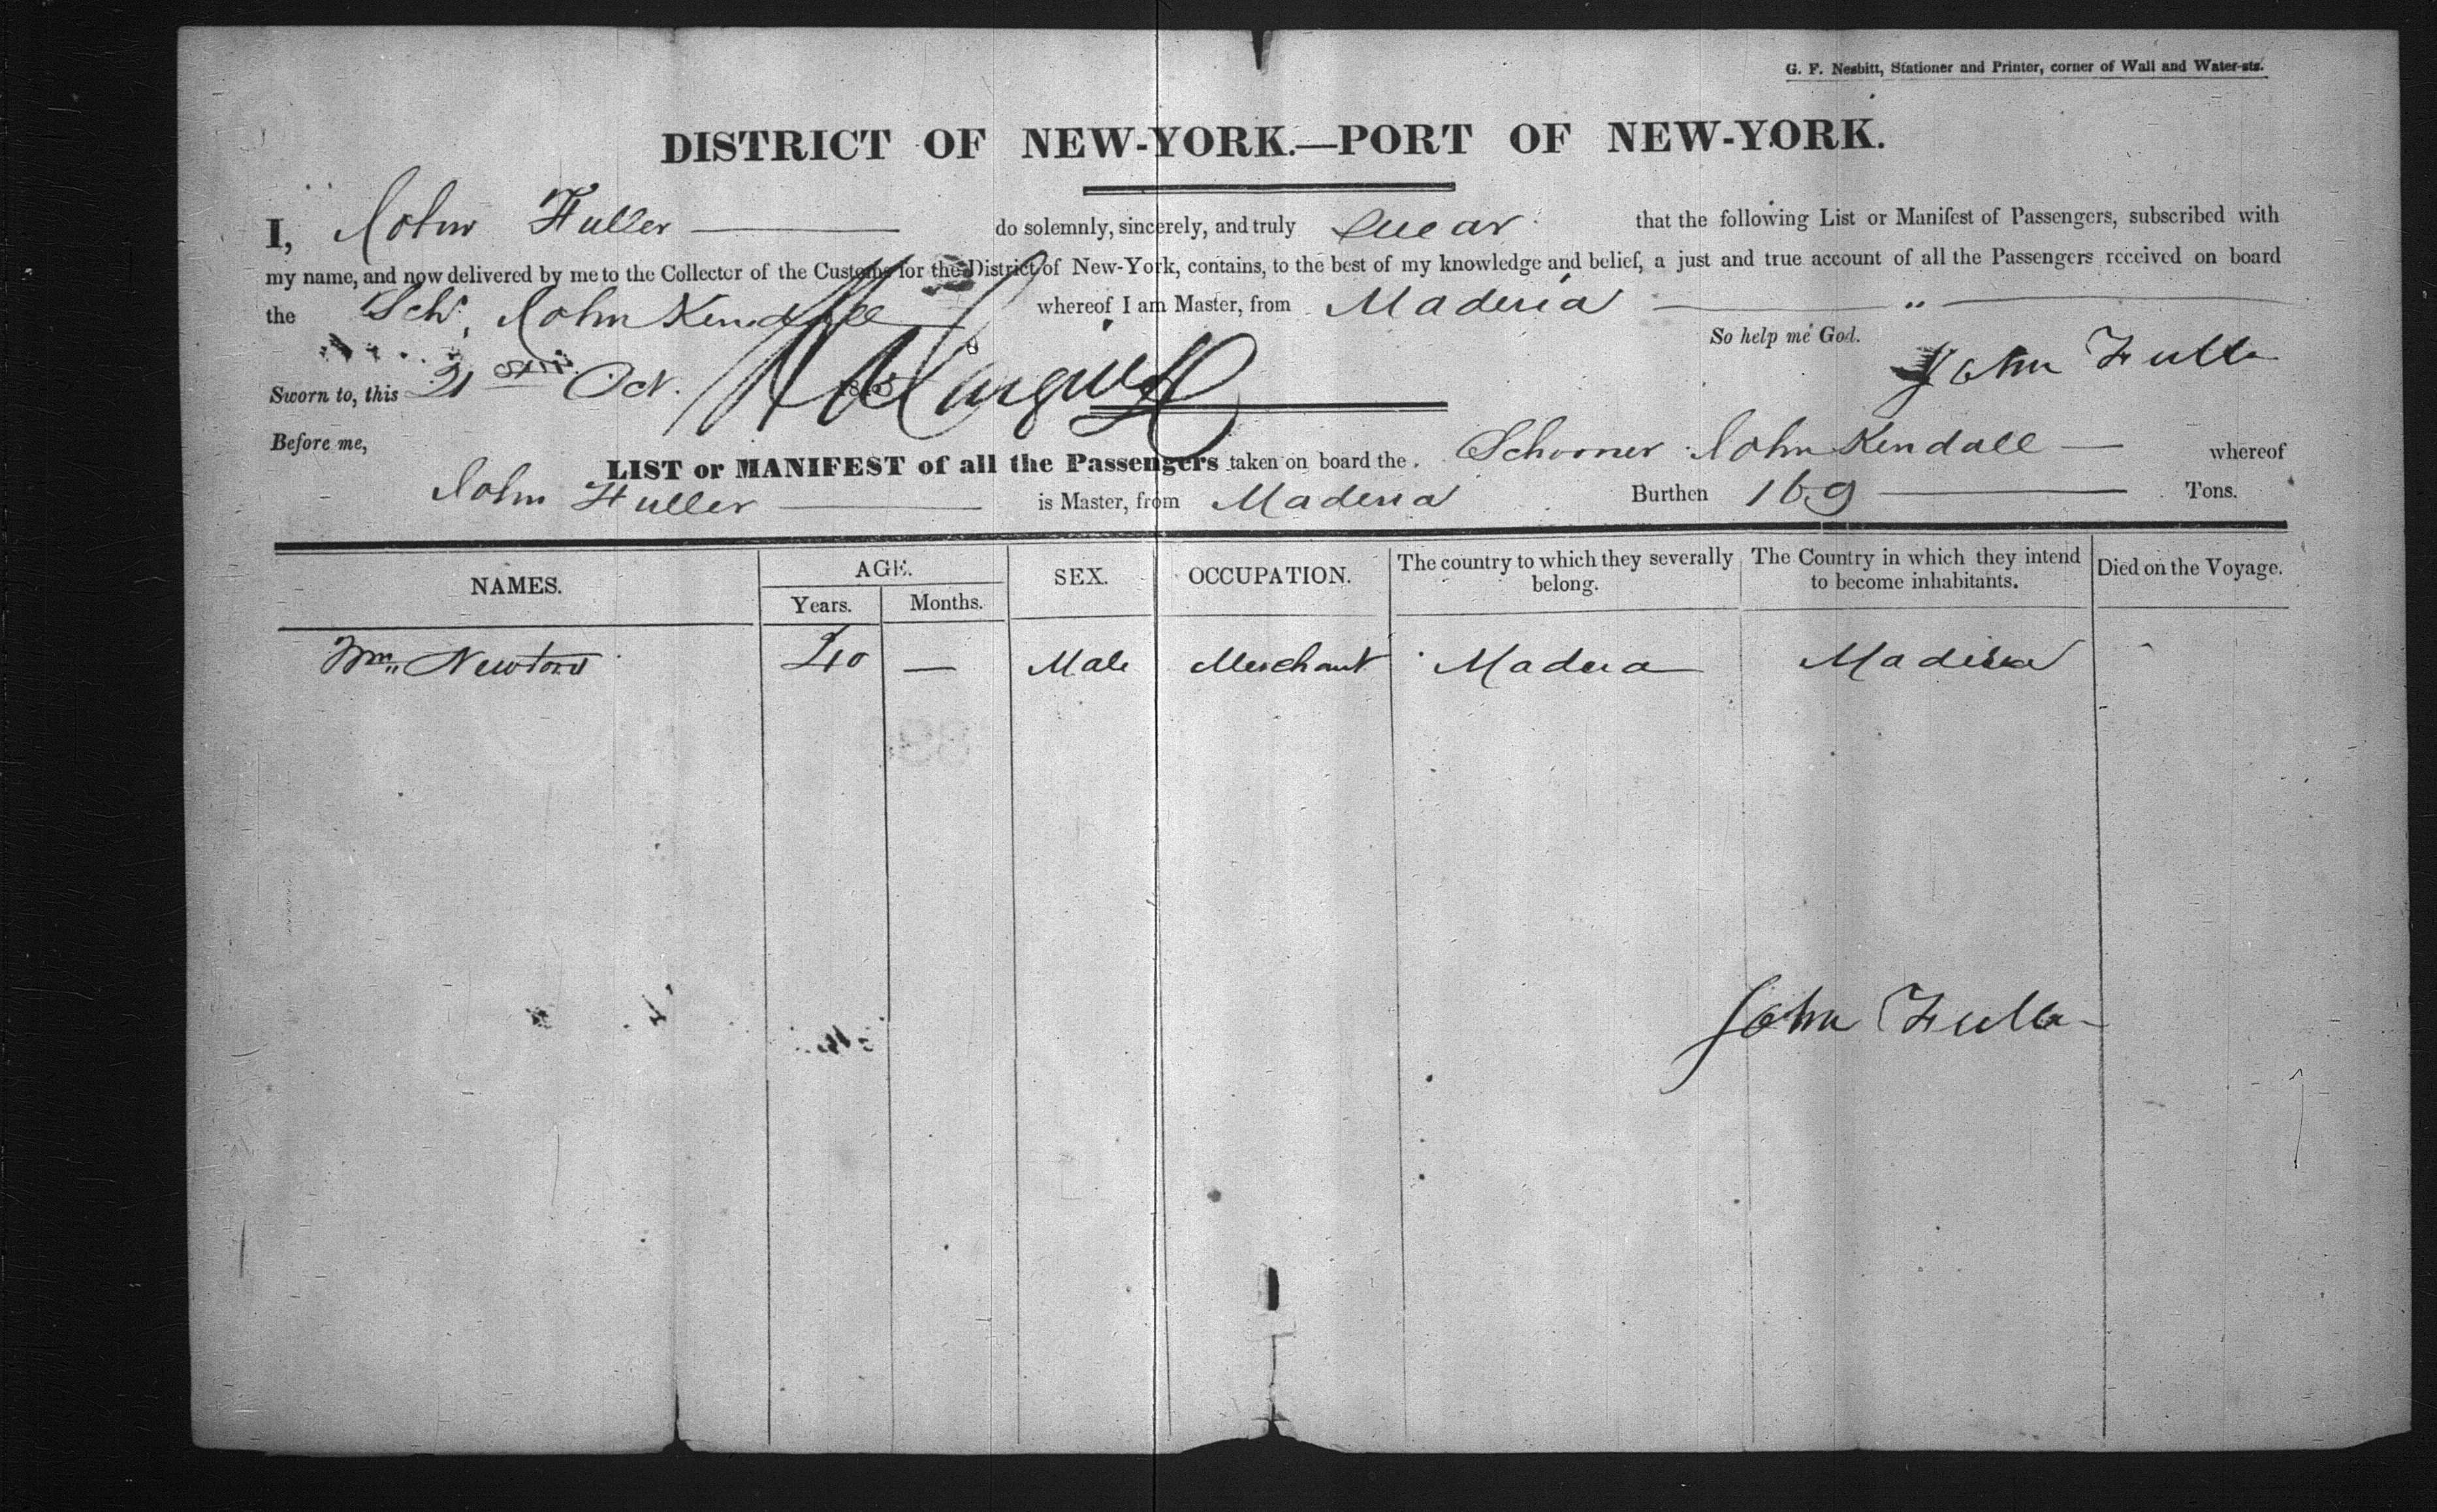 G. F. Nesbitt, Stationer and Printer, corner of Wall and Water-sts.
DISTRICT OF NEW-YORK.—PORT OF NEW-YORK.
I, John Fuller do solemnly, sincerely, and truly swear that the following List or Manifest of Passengers, subscribed with
my name, and now delivered by me to the Collector of the Customs for the District of New-York, contains, to the best of my knowledge and belief, a just and true account of all the Passengers received on board
the Schr. John Kendall whereof I am Master, from Maderia "
So help me God.
Sworn to, this 21 Oct. John Fuller
Before me,
LIST or MANIFEST of all the Passengers taken on board the Schooner John Kendall whereof
John Fuller is Master, from Maderia Burthen 169 Tons.
NAMES. AGE. SEX. OCCUPATION. The country to which they severally belong. The Country in which they intend to become inhabitants. Died on the Voyage.
Years. Months.
Wm. Newton 40 — Male Merchant Madeira Madeira
John Fuller